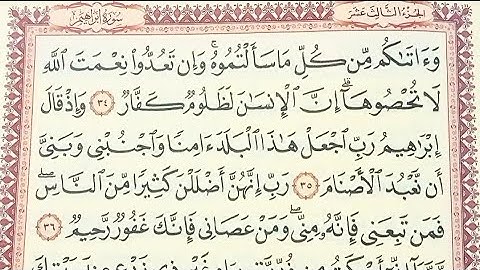 الجزء الثالث عشر
سورة ابراهيم
وَءَاتَىٰكُم مِّن كُلِّ مَا سَأَلْتُمُوهُ ۚ وَإِن تَعُدُّوا۟ نِعْمَتَ ٱللَّهِ
لَا تُحْصُوهَآ ۗ إِنَّ ٱلْإِنسَـٰنَ لَظَلُومٌ كَفَّارٌ ٣٤ وَإِذْ قَالَ
إِبْرَٰهِيمُ رَبِّ ٱجْعَلْ هَـٰذَا ٱلْبَلَدَ ءَامِنًا وَٱجْنُبْنِى وَبَنِىَّ
أَن نَّعْبُدَ ٱلْأَصْنَامَ ٣٥ رَبِّ إِنَّهُنَّ أَضْلَلْنَ كَثِيرًا مِّنَ ٱلنَّاسِ ۖ
فَمَن تَبِعَنِى فَإِنَّهُۥ مِنِّى ۖ وَمَنْ عَصَانِى فَإِنَّكَ غَفُورٌ رَّحِيمٌ ٣٦